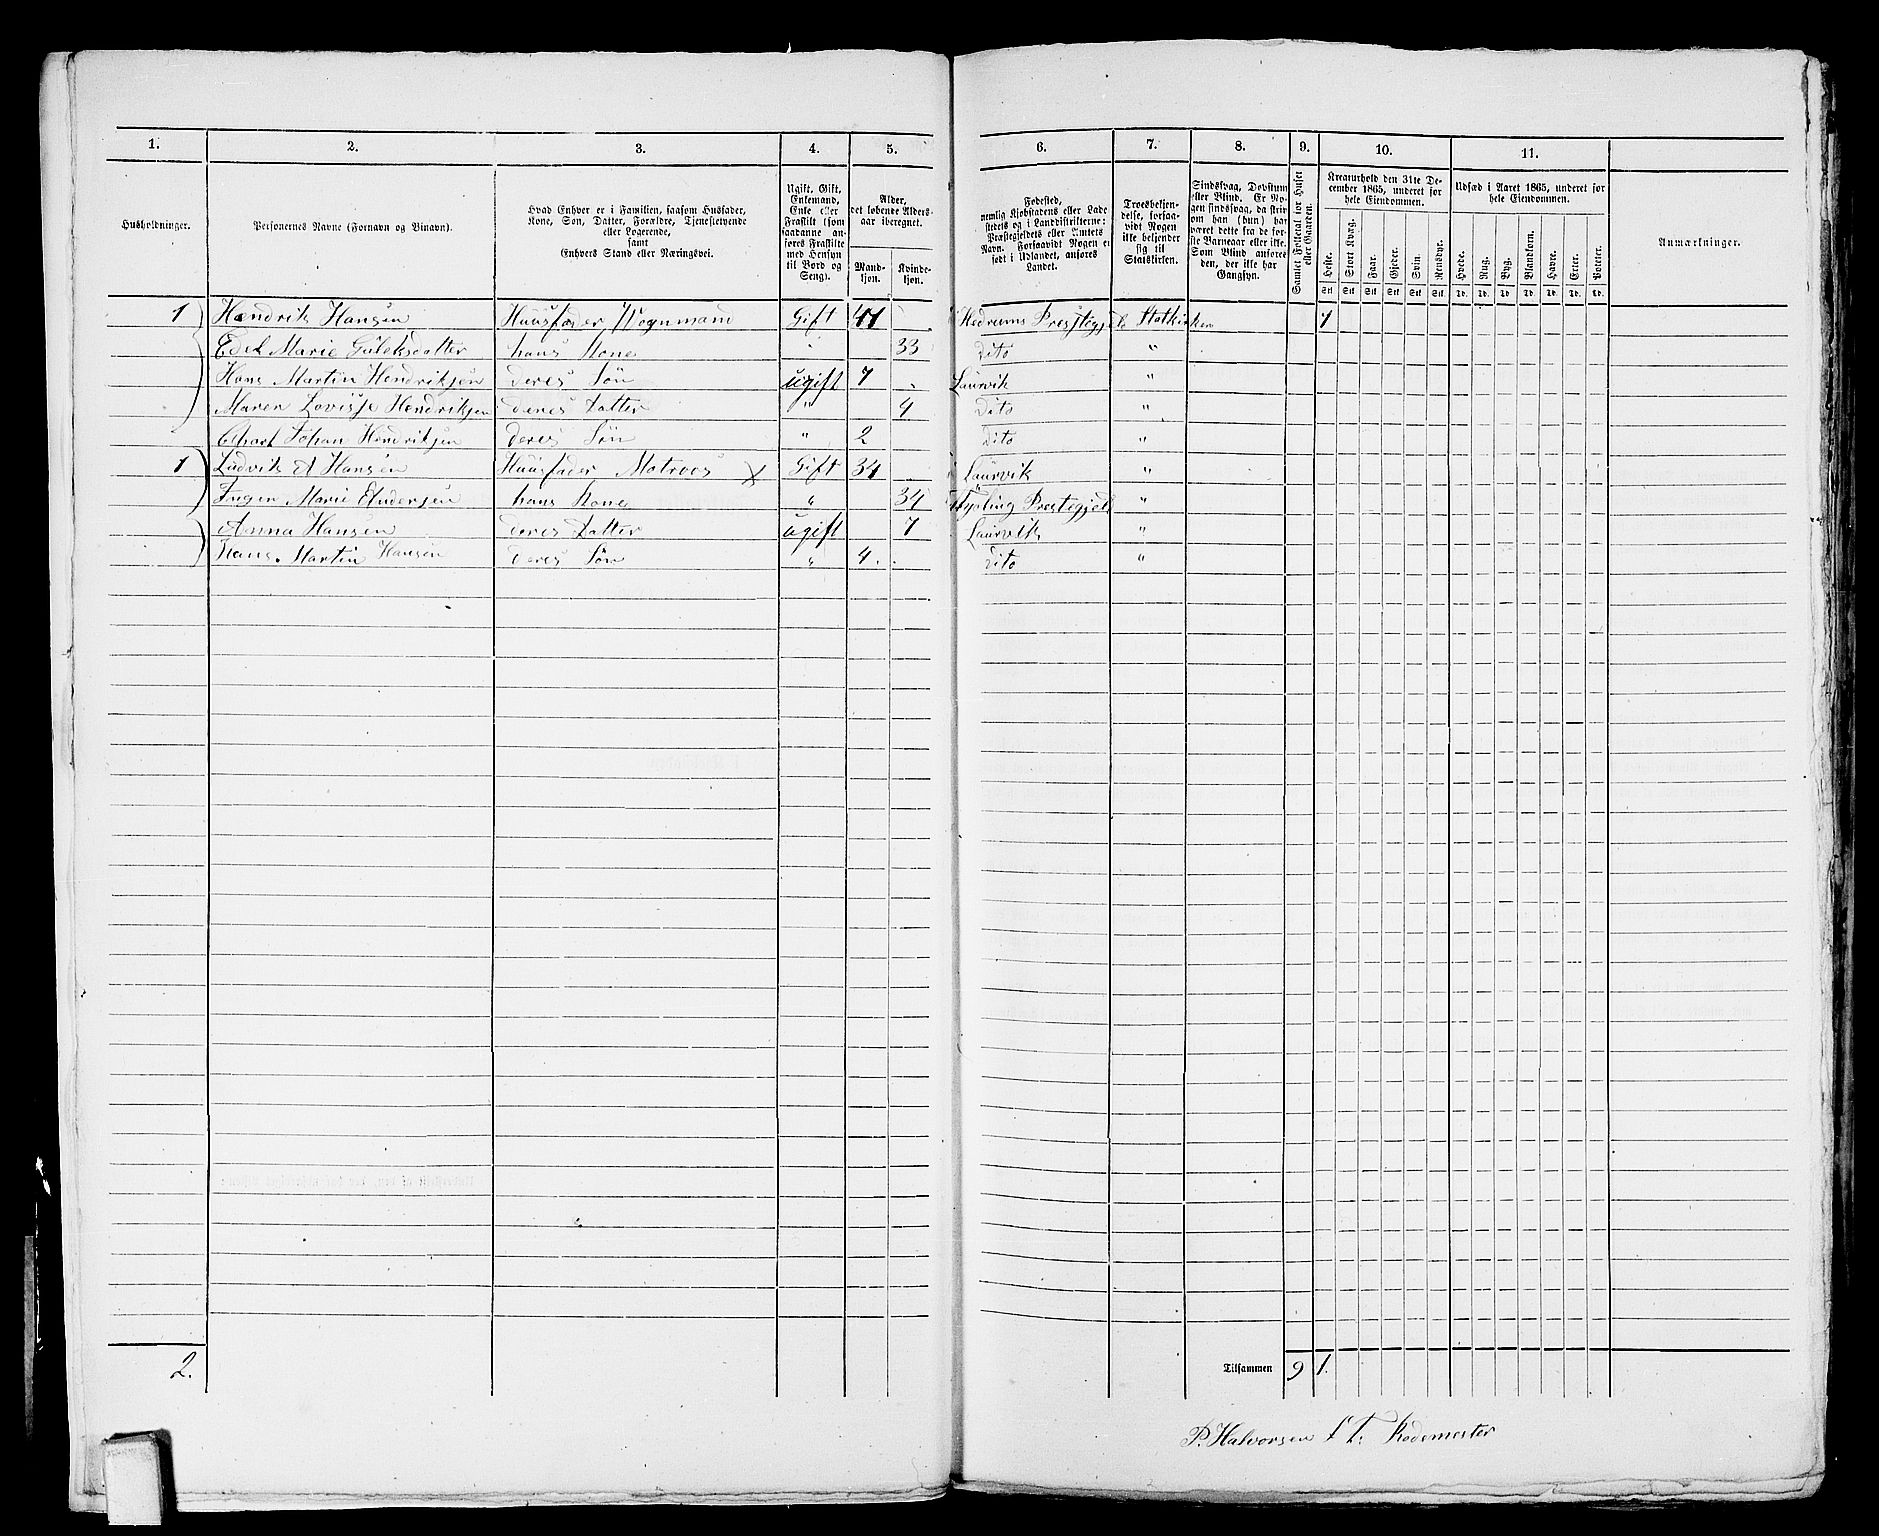 1. 2. 3. 4. 5. 6. 7. 8. 9. 10. 11.
Husholdninger.
Personernes Navne (Fornavn og Binavn).
Hvad Enhver er i Familien, saasom Husfader,
Kone, Søn, Datter, Forældre, Tjenestetyende
eller Logerende,
samt
Enhvers Stand eller Næringsvei.
Ugift, Gift,
Enkemand,
Enke eller
Fraskilt (som
saadanne an-
føres Fraskilte
med Hensyn
til Bord og
Seng).
Alder,
det løbende Alders-
aar iberegnet.
Mand-
kjøn.
Kvinde-
kjøn.
Fødested,
nemlig Kjøbstadens eller Lade-
stedets og i Landdistrikterne:
Præstegjeldets eller Amtets
Navn. Forsaavidt Nogen er
født i Udlandet, anføres
Landet.
Troesbekjen-
delse, forsaa-
vidt Nogen
ikke bekjender
sig til
Statskirken.
Sindssvag, Døvstum
eller Blind. Er No-
gen sindssvag, da skriv
om han (hun) har
været dette fra de før-
ste Barneaar eller ikke.
Som Blind anføres
den, der ikke har
Gangsyn.
Samlet Folketal for Huset
eller Gaarden.
Kreaturhold den 31te De-
cember 1865, underet for
hele Eiendommen.
Heste. Stort Kvæg. Faar. Gjeder. Svin. Rensdyr.
Stk. Stk. Stk. Stk. Stk. Stk.
Udsæd i Aaret 1865, underet for
hele Eiendommen.
Hvede. Rug. Byg. Blandkorn. Havre. Erter. Poteter.
Td. Td. Td. Td. Td. Td. Td.
Anmærkninger.
1 Hendrik Hansen Huusfader Vognmand Gift 41 Hedrums Prestegjeld Statkirken 1
Marie Guleksdatter hans Kone " 33 Dito "
Hans Martin Hendriksen deres Søn ugift 7 Laurvik "
Maren Lovisse Hendriksen deres Datter " 4 Dito "
Johan Hendriksen deres Søn " 2 Dito "
1 Ludvik A Hansen Huusfader Matroos X Gift 34 Laurvik "
Inger Marie Andersen hans Kone " 34 Prestegjeld "
Anna Hansen deres Datter ugift 7 Laurvik "
Hans Martin Hansen deres Søn " 4 Dito "
2. Tilsammen 9 1.
P. Halvorsen f. T. Rodemester